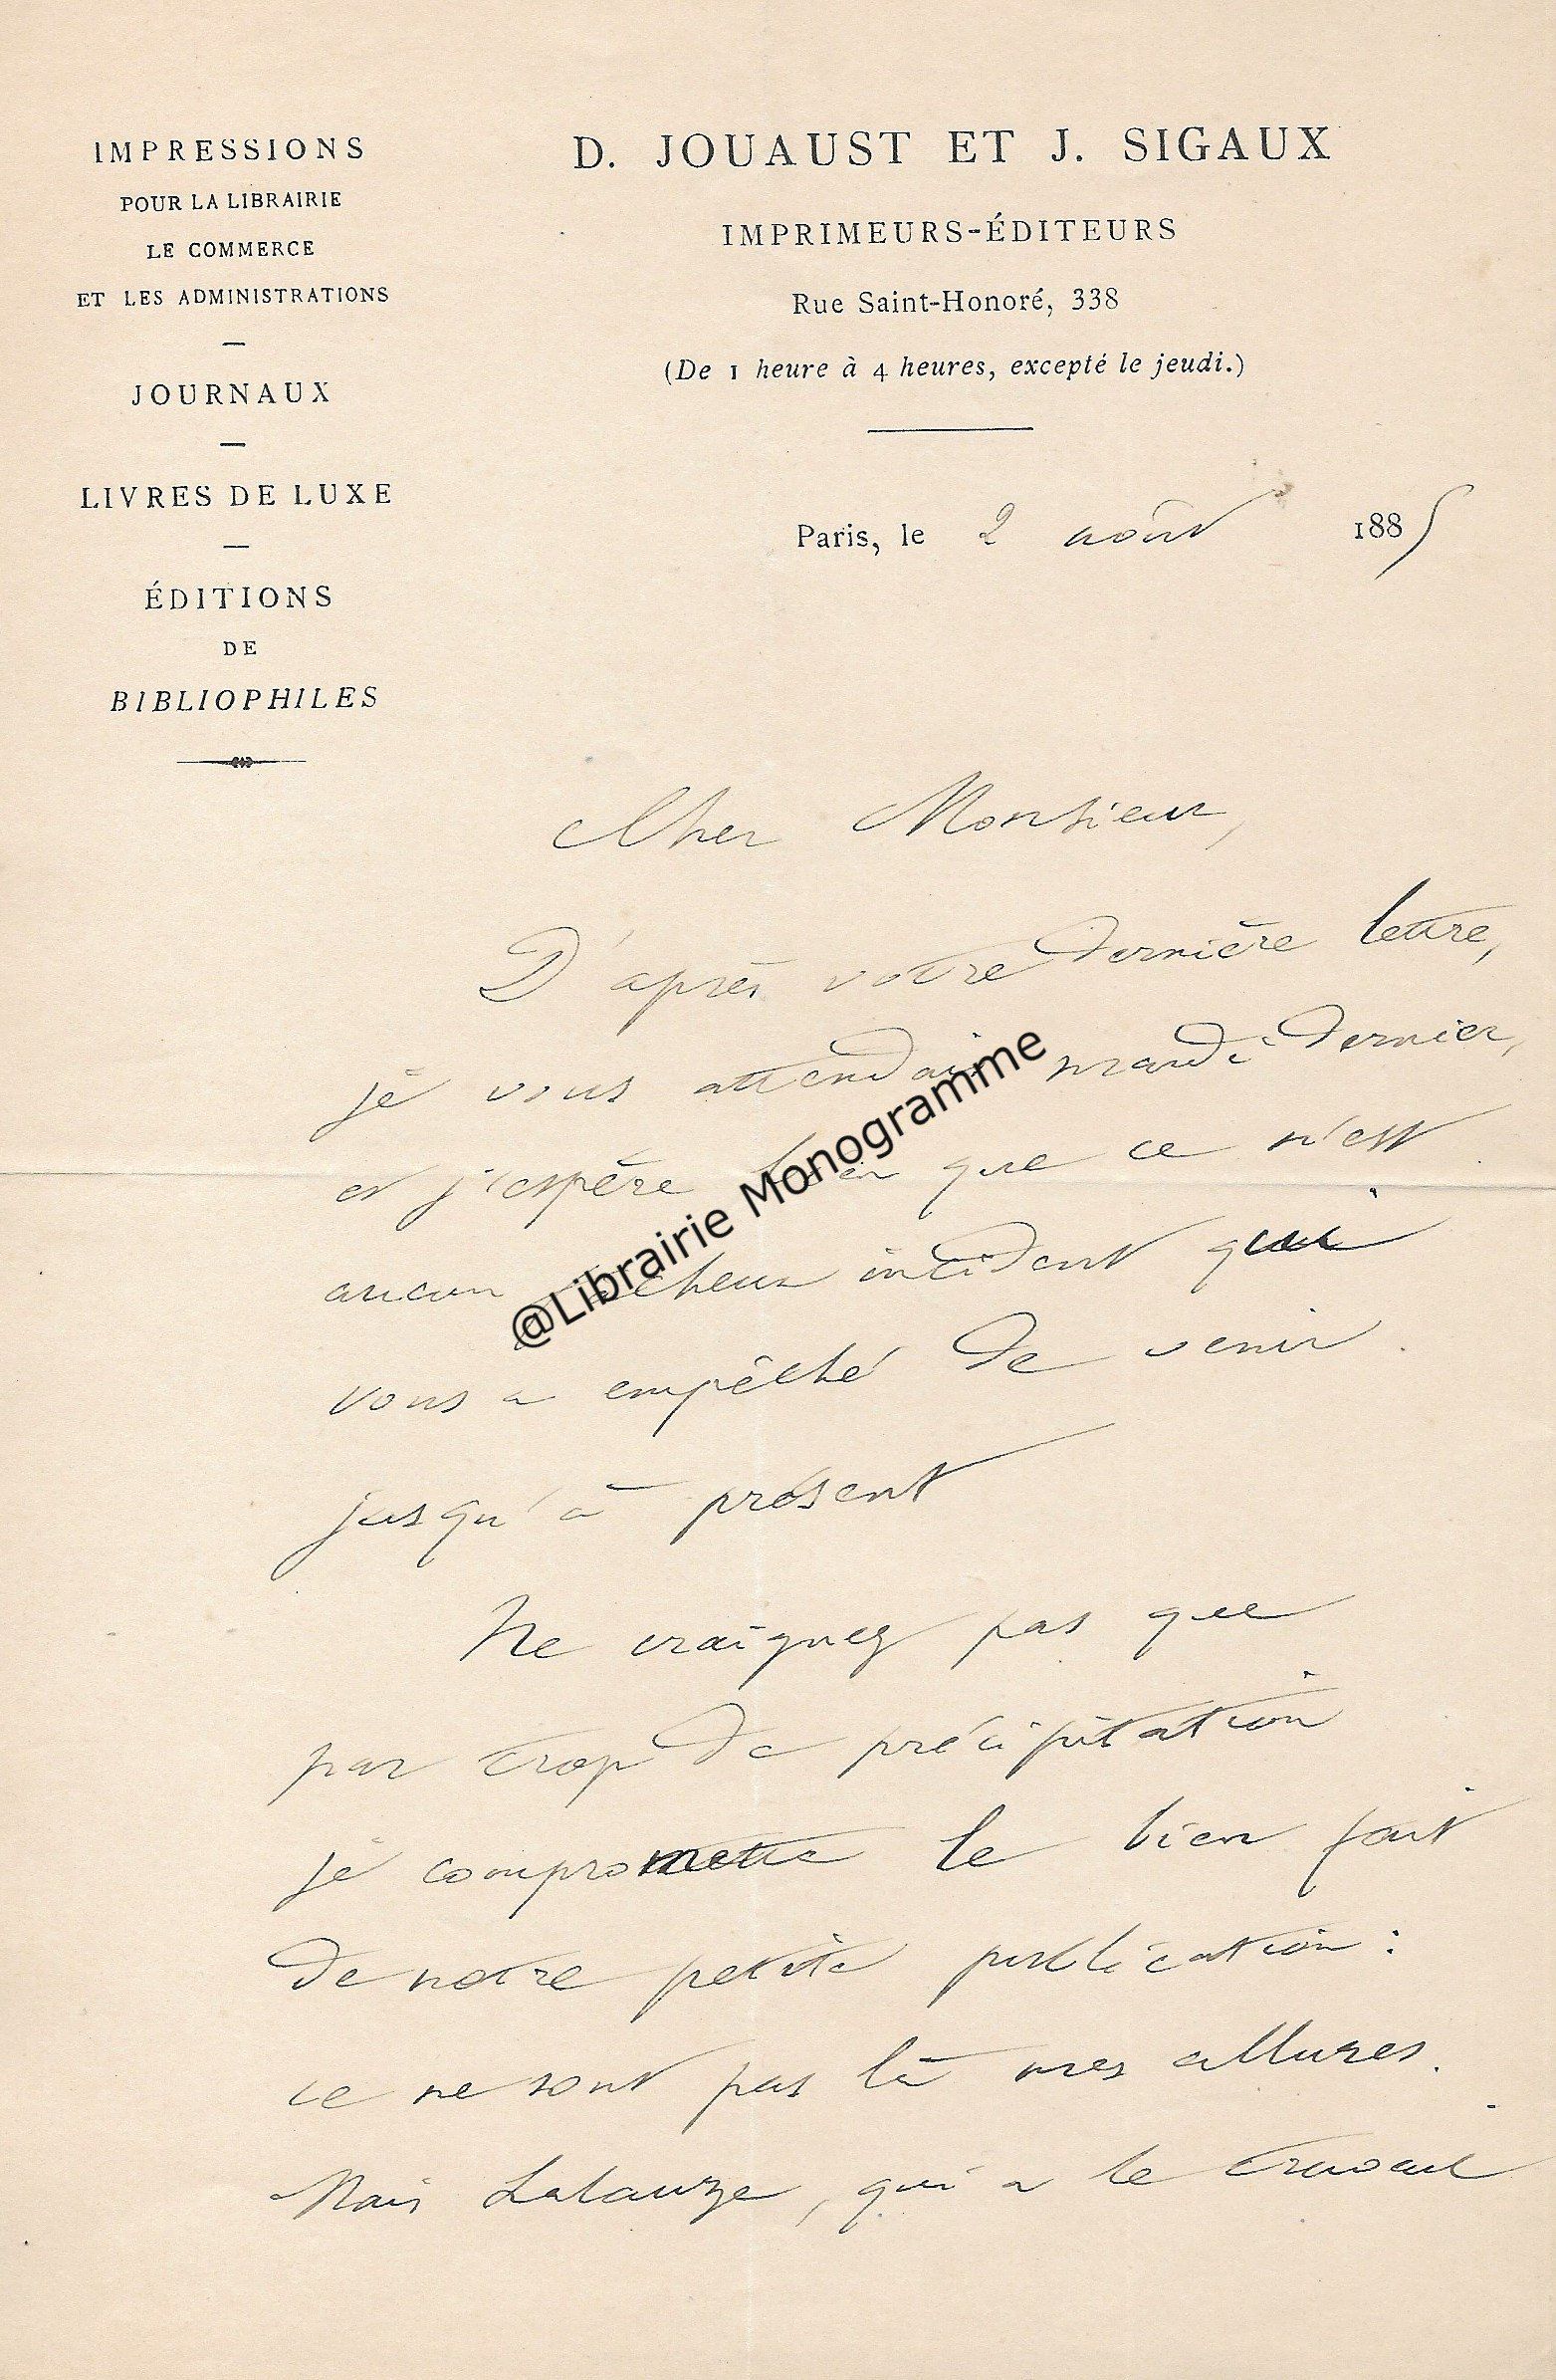 IMPRESSIONS
POUR LA LIBRAIRIE
LE COMMERCE
ET LES ADMINISTRATIONS
JOURNAUX
LIVRES DE LUXE
ÉDITIONS
DE
BIBLIOPHILES
D. JOUAUST ET J. SIGAUX
IMPRIMEURS-ÉDITEURS
Rue Saint-Honoré, 338
(De 1 heure à 4 heures, excepté le jeudi.)
Paris, le 2 août 1885
Cher Monsieur,
D'après votre dernière lettre,
je vous attendais mardi dernier,
et j'espère bien que ce n'est
aucun fâcheux incident qui
vous a empêché de venir
jusqu'à présent
Ne craignez pas que
par trop de précipitation
je compromette le bien fait
de notre petite publication :
ce ne sont pas là mes allures.
Mais Lalauze, qui a le travail
@Librairie Monogramme